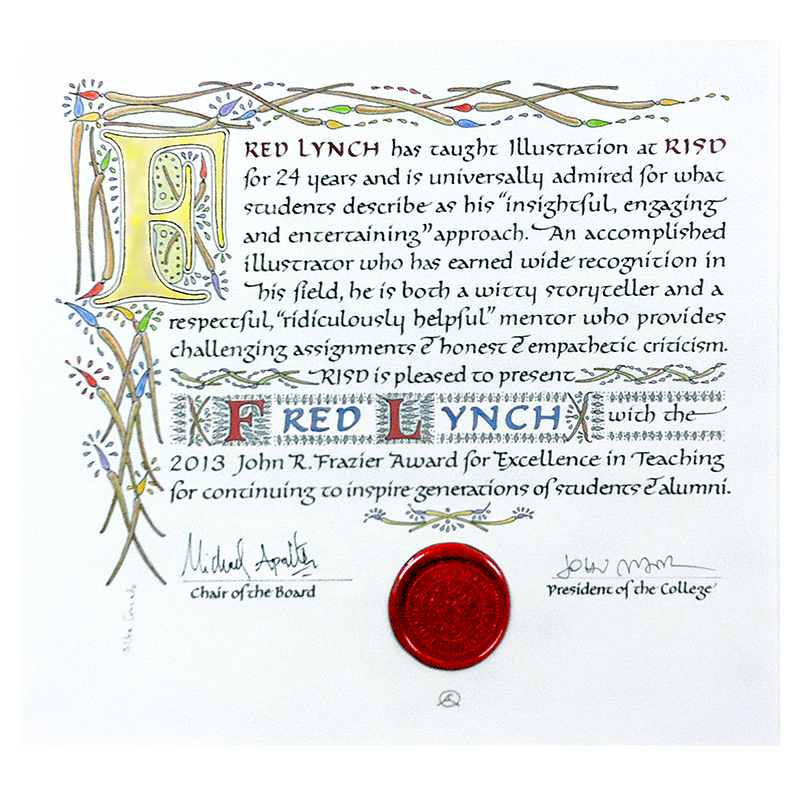 FRED LYNCH has taught Illustration at RISD
for 24 years and is universally admired for what
students describe as his "insightful, engaging
and entertaining" approach. An accomplished
illustrator who has earned wide recognition in
his field, he is both a witty storyteller and a
respectful, "ridiculously helpful" mentor who provides
challenging assignments & honest & empathetic criticism.
RISD is pleased to present
FRED LYNCH with the
2013 John R. Frazier Award for Excellence in Teaching
for continuing to inspire generations of students & alumni.
Michael
Chair of the Board
John
President of the College